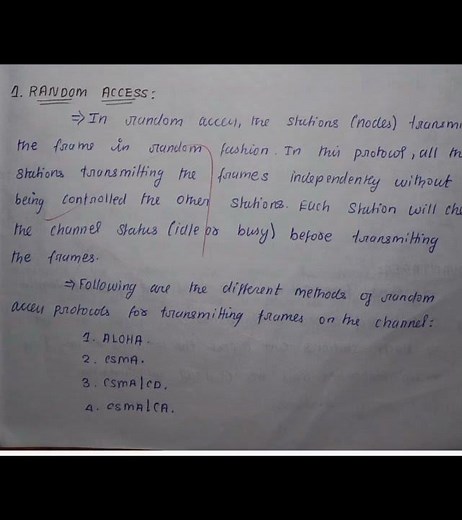 1. RANDOM ACCESS:
⇒ In random access, the stations (nodes) transmi
the frame in random fashion. In this protocol, all th
stations transmitting the frames independently without
being controlled the other stations. Each station will che
the channel status (idle or busy) before transmitting
the frames.
⇒ Following are the different methods of random
access protocols for transmitting frames on the channel:
1. ALOHA.
2. CSMA.
3. CSMA/CD.
4. CSMA/CA.